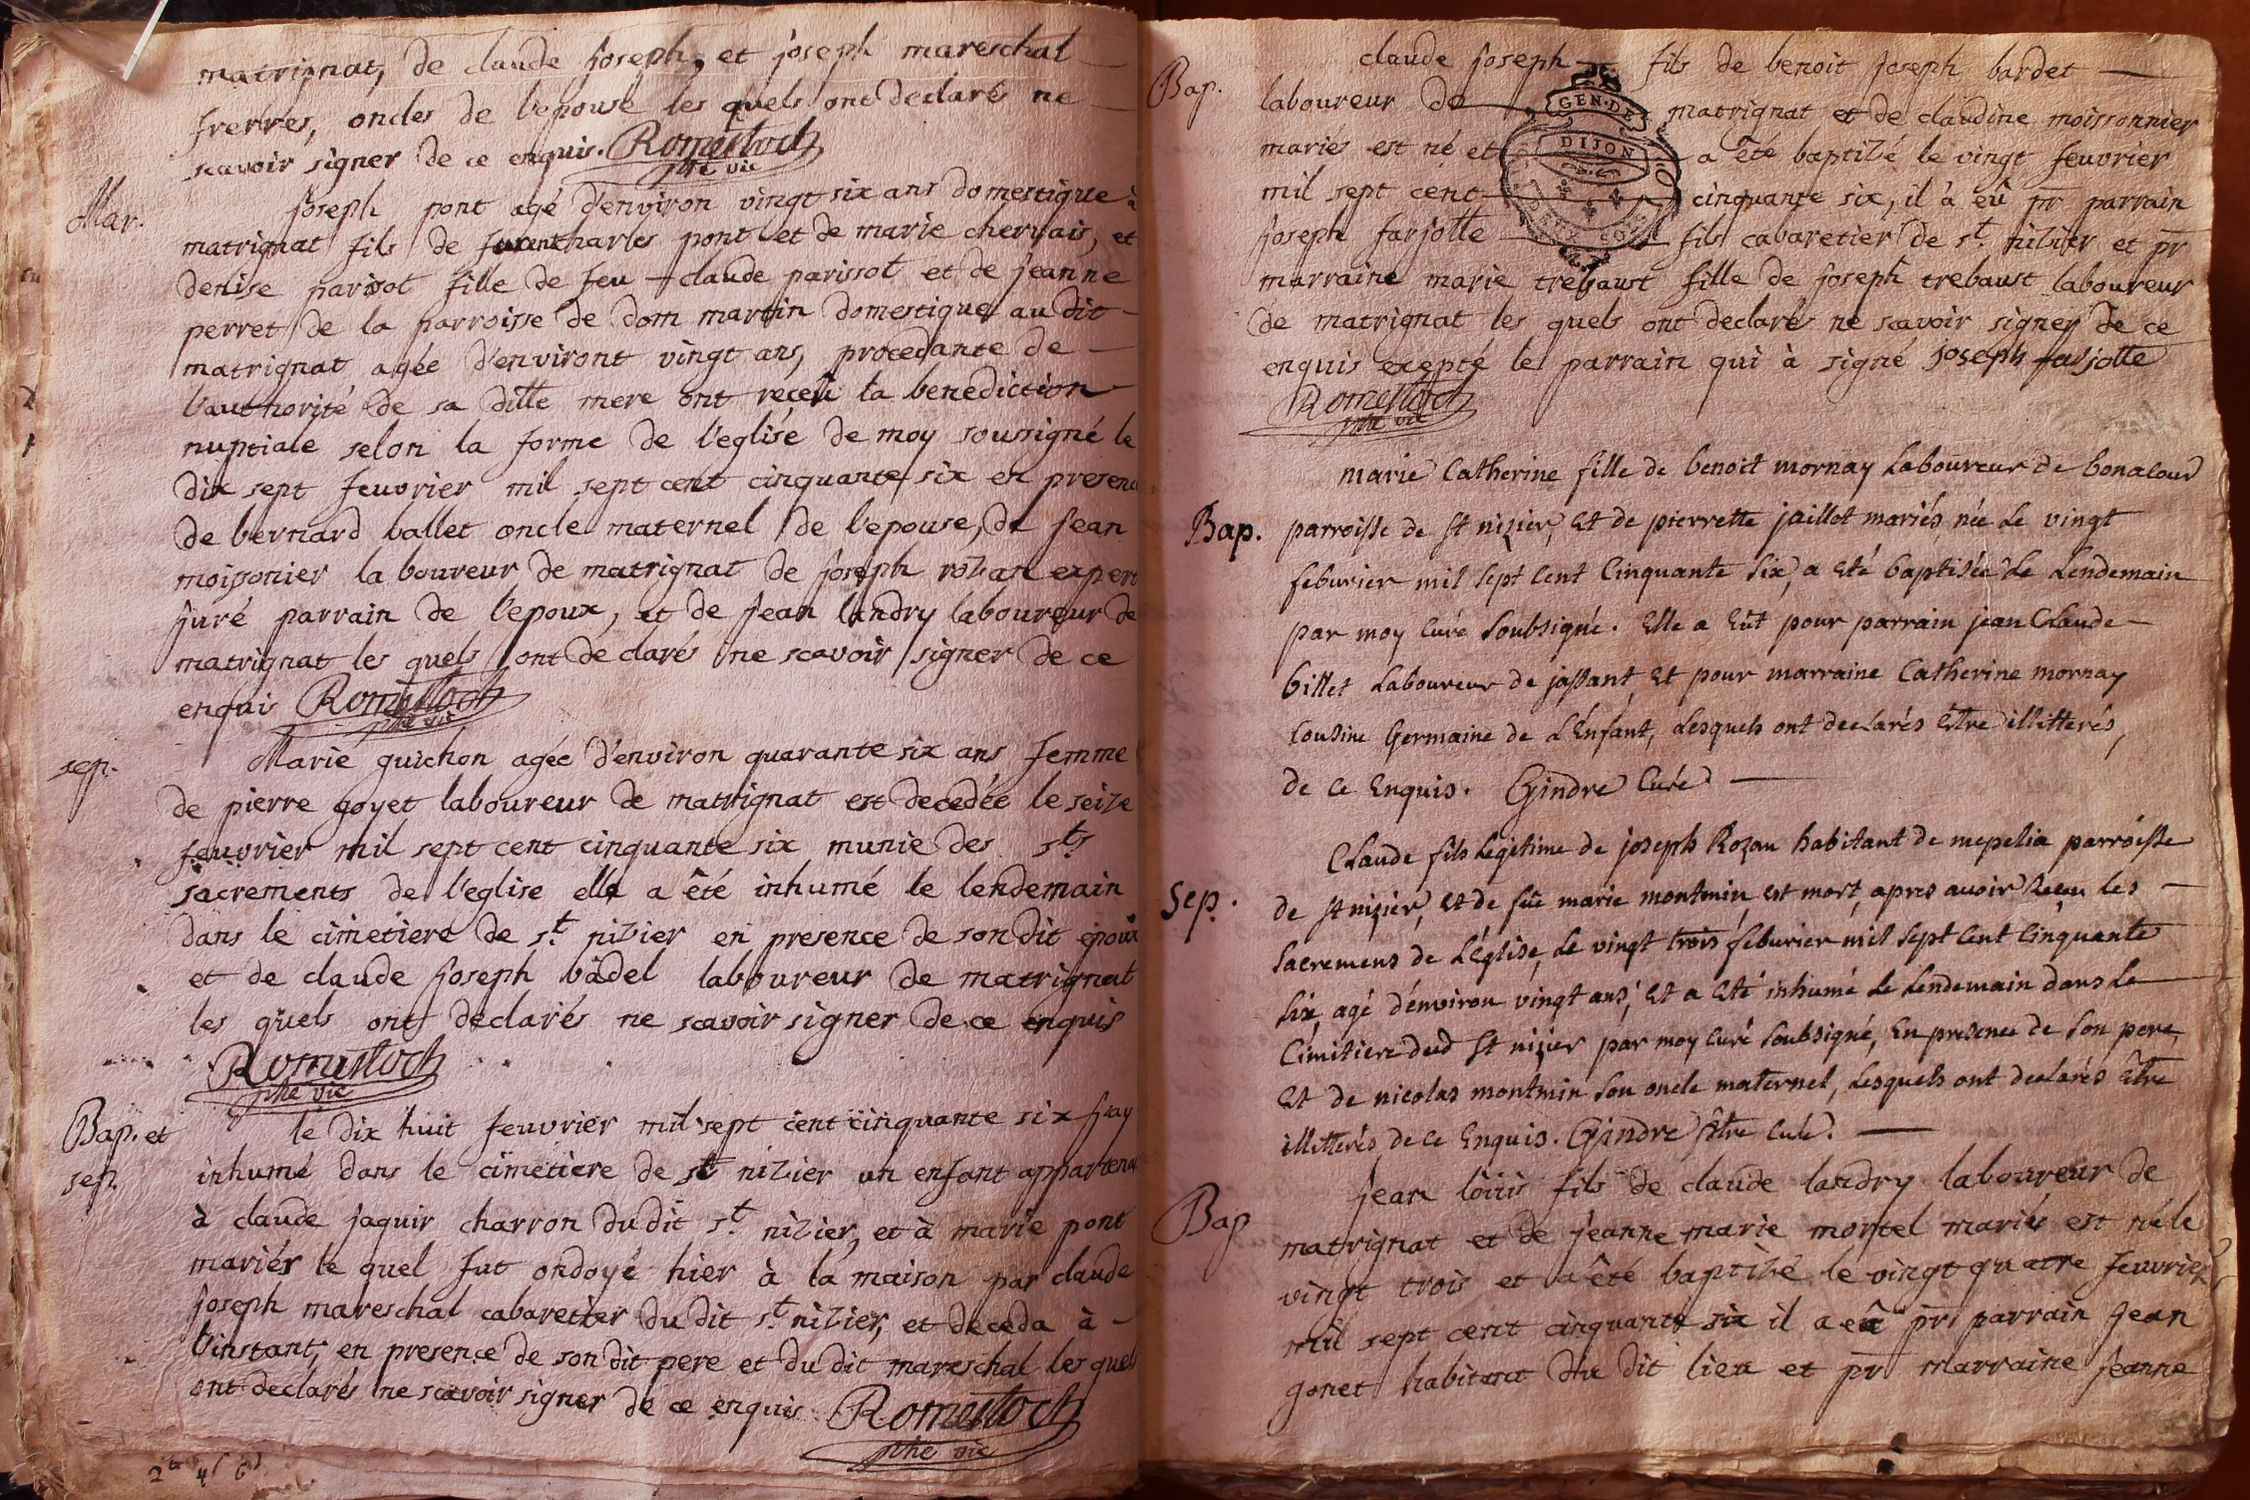 matrignat, de claude joseph, et joseph mareschal
frerres, oncles de l'epouse les quels ont declarés ne
scavoir signer de ce enquis. Romistoch
ptre vic
Mar.
joseph pont agé d'environ vingt six ans domestique à
matrignat fils de charles pont et de marie chervais, et
denise parisot fille de feu claude parissot et de jeanne
perret de la parroisse de dom martin domestique au dit
matrignat agée d'environt vingt ans, procedante de
l'authorité de sa ditte mere ont receû la benediction
nuptiale selon la forme de l'eglise de moy soussigné le
dix sept feuvrier mil sept cent cinquante six en presence
de bernard vallet oncle maternel de l'epouse, de jean
moissonier laboureur de matrignat de joseph rozan expert
juré parrain de l'epoux, et de jean landry laboureur de
matrignat les quels ont declarés ne scavoir signer de ce
enquis Romistoch
ptre vic
sep.
Marie guichon agée d'environ quarante six ans femme
de pierre goyet laboureur de matrignat est decedée le seize
feuvrier mil sept cent cinquante six munie des sts
sacrements de l'eglise elle a êté inhumé le lendemain
dans le cimetiere de st nizier en presence de son dit epoux
et de claude joseph vâdel laboureur de matrignat
les quels ont declarés ne scavoir signer de ce enquis
Romistoch
ptre vic
Bap. et
sep.
le dix huit feuvrier mil sept cent cinquante six j'ay
inhumé dans le cimetiere de st nizier un enfant appartena
à claude jaquir charron du dit st nizier, et à marie pont
mariés le quel fut ondoyé hier à la maison par claude
joseph mareschal cabaretier du dit st nizier, et deceda à
l'instant, en presence de son dit pere et du dit mareschal les quels
ont declarés ne scavoir signer de ce enquis Romistoch
ptre vic
2 4 6
Bap.
claude joseph fils de benoit joseph bardet
laboureur de matrignat et de claudine moissonnier
mariés est né et a été baptizé le vingt feuvrier
mil sept cent cinquante six, il à eû pr parrain
joseph farjotte fils cabaretier de st nizier et pr
marraine marie trebaust fille de joseph trebaust laboureur
de matrignat les quels ont declarés ne scavoir signer de ce
enquis exepté le parrain qui à signé joseph farjotte
Romistoch
ptre vic
GEN. DE
DIJON
Bap.
marie Catherine fille de benoit mornay Laboureur de bonacour
parroisse de st nizier, et de pierrette jaillet mariés, née Le vingt
feburier mil sept Cent Cinquante six, a eté baptisée Le Lendemain
par moy Curé soubsigné. Elle a eût pour parrain jean Claude
billet Laboureur de jassant, et pour marraine Catherine mornay
Cousine Germaine de L'Enfant, Lesquels ont declarés être illitterés,
de ce Enquis. Gindre Curé
Sep.
Claude fils Legitime de joseph Rozan habitant de mepelia parroisse
de st nizier, et de fûe marie montmin, est mort, apres avoir Receu les
sacremens de L'église, Le vingt trois feburier mil sept Cent Cinquante
six, agé d'environ vingt ans, et a eté inhumé Le Lendemain dans Le
Cimitiere dud st nizier par moy Curé soubsigné, en presence de son pere,
et de nicolas montmin son oncle maternel, Lesquels ont declarés être
illitterés, de ce Enquis. Gindre ptre Curé.
Bap
jean loüis fils de claude landry laboureur de
matrignat et de jeanne marie mortel mariés est né le
vingt trois et a êté baptizé le vingt quatre feuvrier
mil sept cent cinquante six il a eû pr parrain jean
gonet habitant du dit lieu et pr marraine jeanne